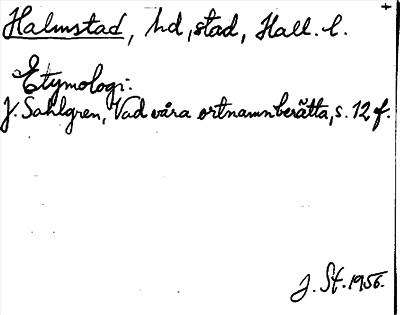 Halmstad, hd, stad, Hall. l.
Etymologi:
J. Sahlgren, Vad våra ortnamn berätta, s. 12 f.
J. St. 1956.